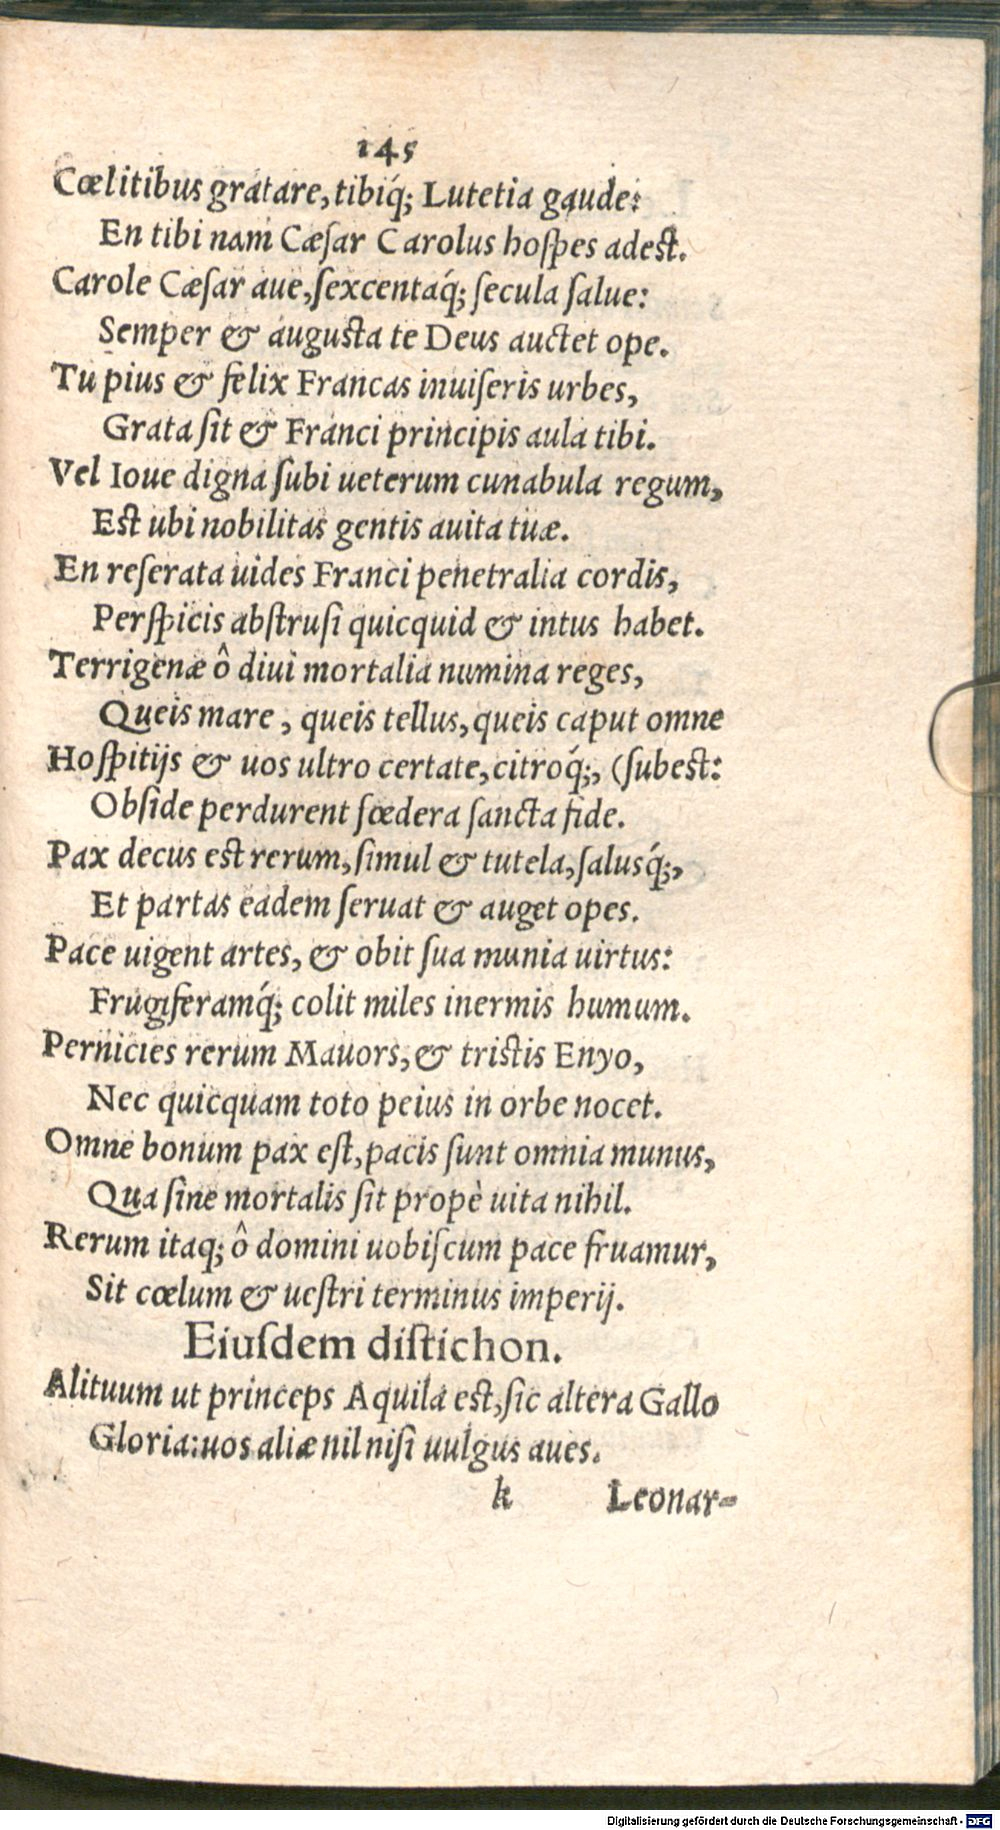 145
Cœlitibus gratare, tibiq́; Lutetia gaude:
En tibi nam Cæſar Carolus hoſpes adest.
Carole Cæſar aue, ſexcentaq́; ſecula ſalue:
Semper & augusta te Deus auctet ope.
Tu pius & felix Francas inuiſeris urbes,
Grata ſit & Franci principis aula tibi.
Vel Ioue digna ſubi ueterum cunabula regum,
Est ubi nobilitas gentis auita tuæ.
En reſerata uides Franci penetralia cordis,
Perſpicis abſtruſi quicquid & intus habet.
Terrigenæ ô diui mortalia numina reges,
Queis mare, queis tellus, queis caput omne
Hoſpitijs & uos ultro certate, citroq́;, (ſubest:
Obſide perdurent fœdera ſancta fide.
Pax decus est rerum, ſimul & tutela, ſalusq́;,
Et partas eadem ſeruat & auget opes.
Pace uigent artes, & obit ſua munia uirtus:
Frugiferamq́; colit miles inermis humum.
Pernicies rerum Mauors, & tristis Enyo,
Nec quicquam toto peius in orbe nocet.
Omne bonum pax eſt, pacis ſunt omnia munus,
Qua ſine mortalis ſit propè uita nihil.
Rerum itaq; ô domini uobiſcum pace fruamur,
Sit cœlum & ueſtri terminus imperij.
Eiuſdem diſtichon.
Alituum ut princeps Aquila est, ſic altera Gallo
Gloria: uos aliæ nil niſi uulgus aues.
k Leonar-
Digitalisierung gefördert durch die Deutsche Forschungsgemeinschaft - DFG